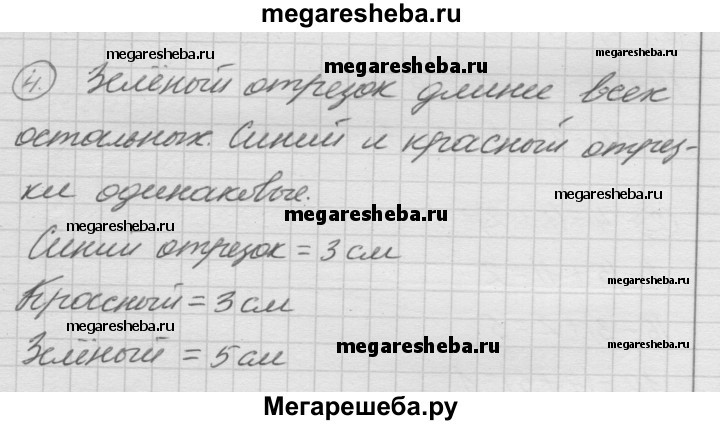 megaresheba.ru
megaresheba.ru
megaresheba.ru
megaresheba.ru
4. Зелёный отрезок длинее всех
остальных. Синий и красный отрез-
ки одинаковые.
megaresheba.ru
megaresheba.ru
megaresheba.ru
megaresheba.ru
Синий отрезок = 3 см
megaresheba.ru
Красный = 3 см
megaresheba.ru
megaresheba.ru
Зелёный = 5 см
Мегарешеба.ру